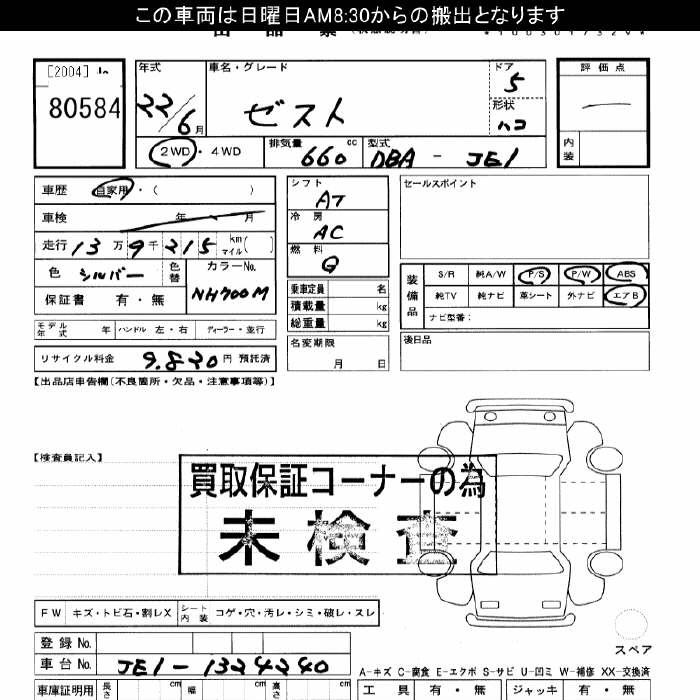 この車両は日曜日AM8:30からの搬出となります
[2004]
80584
年式
22/6月
車名・グレード
ゼスト
ドア
5
形状
ハコ
評価点
内装
2WD・4WD
排気量 660 cc
型式 DBA - JE1
車歴 自家用・( )
車検 年 月
走行 13万9千215 km マイル( )
色 シルバー 色替
カラーNo.
NH700M
保証書 有・無
シフト
AT
冷房
AC
燃料
G
乗車定員 名
積載量 kg
総重量 kg
セールスポイント
装備品
S/R 純A/W P/S P/W ABS
純TV 純ナビ 革シート 外ナビ エアB
ナビ型番:
モデル年式 年 ハンドル 左・右 ディーラー・並行
リサイクル料金 9,820 円 預託済
名変期限
月 日
後日品
【出品店申告欄(不良箇所・欠品・注意事項等)】
【検査員記入】
買取保証コーナーの為
未検査
FW キズ・トビ石・割レX シート内装 コゲ・穴・汚レ・シミ・破レ・スレ
登録 No.
車台 No. JE1-1324240
スペア
A-キズ C-腐食 E-エクボ S-サビ U-凹ミ W-補修 XX-交換済
車庫証明用 長さ cm 幅 cm 高さ cm
工具 有・無 ジャッキ 有・無